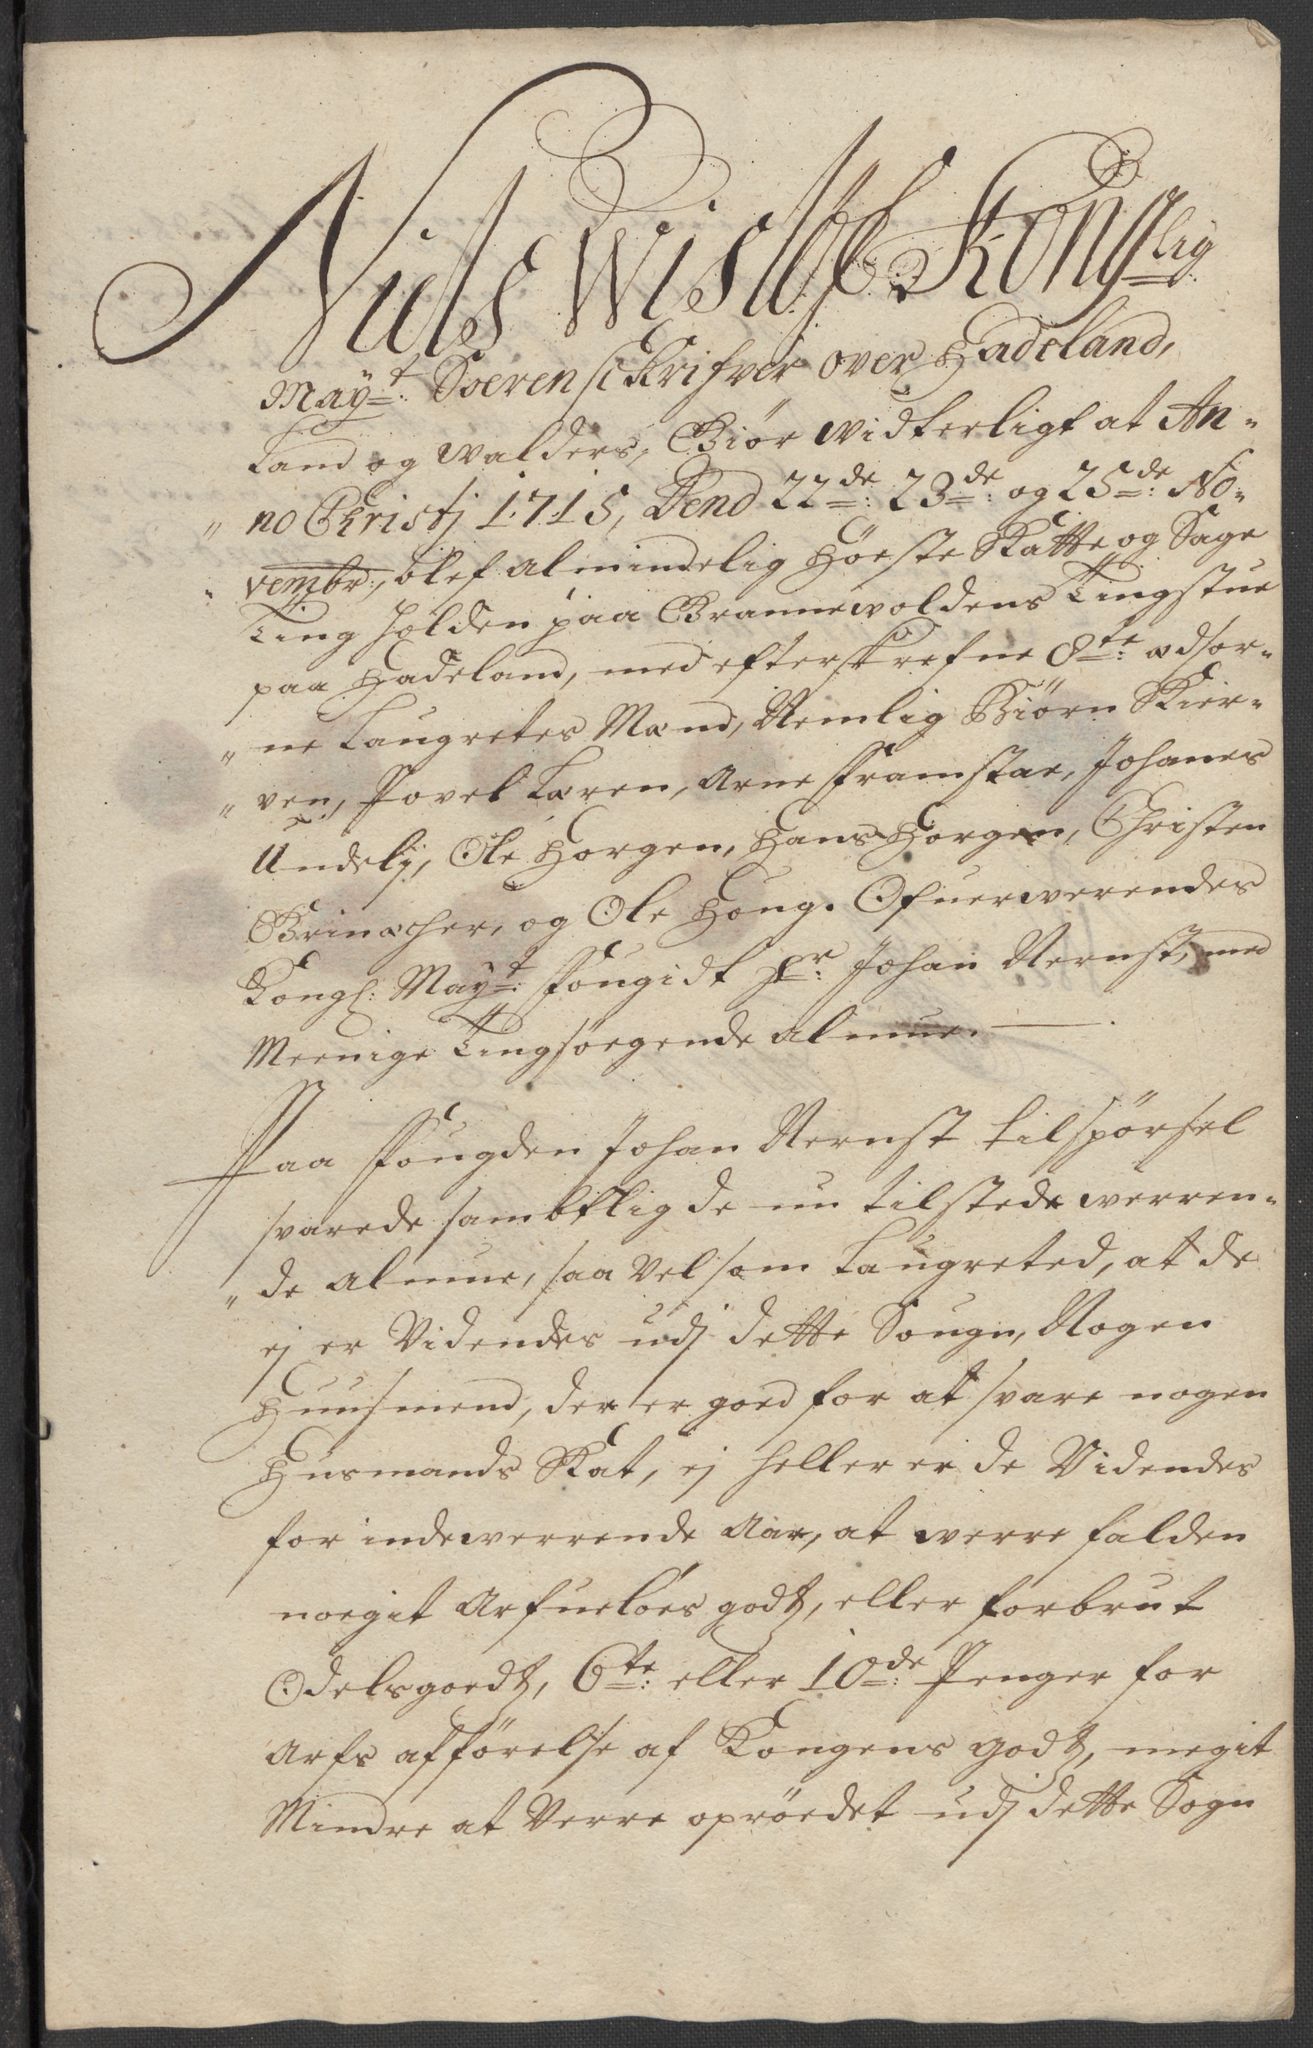 Niels Wisløf Kong=lig
May=t: Soerenschrifver over Hadeland,
Land og Walders, Giør widterligt at An=
" no Christj 1715, Dend 22=de: 23=de: og 25=de: No=
" vembr:, blef Almindelig Høeste Skatte og Sage
Ting holden paa Grannewoldens Tingstue
paa Hadeland, med efterskrefne 8=te: ædsor=
" ne Laugretes Mænd, Nemlig Biørn Skier=
" ven, Povel Læren, Arne Framstae, Johanes
Undelj, Ole Horgen, Hans Horgen, Christen
Grinacher, og Ole Houg. Ofuerwerendes
Kongl: May=t: Fougidt Hr: Johan Nernst, med
Meenige Tingsøegende Almue.
Paa Fougden Johan Nernst tilspörsel
svarede sambtlig de nu tilstede werren=
" de Almue, saa vel som Laugreted, at de
ej er Videndes udj dette Sougn, Nogen
Huusmend, der er goed for at svare nogen
Husmands Skat, ej heller er de Videndes
for indewerrende Aar, at werre falden
noegit Arfueløes godz, eller forbrut
Odelsgoedz, 6=te: eller 10=de: Penger for
Arfs afförelse af Kongens godz, megit
Mindre at Verre opröedet udj dette Sogn